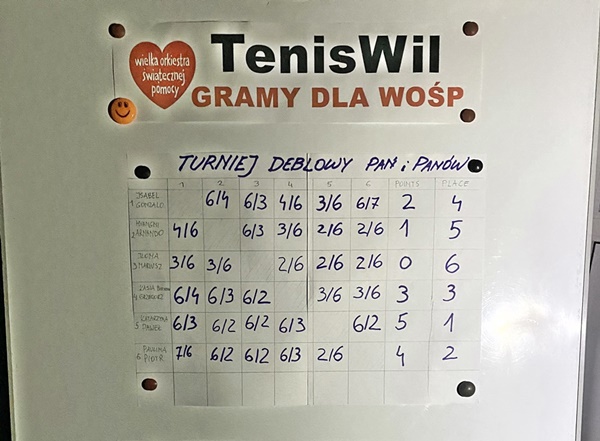 wielka orkiestra
świątecznej
pomocy
TenisWil
GRAMY DLA WOŚP
TURNIEJ DEBLOWY PAŃ i PANÓW
1 2 3 4 5 6 POINTS PLACE
1 IZABEL GONZALO 6/4 6/3 4/6 3/6 6/7 2 4
2 4/6 6/3 3/6 2/6 2/6 1 5
3 MARIUSZ 3/6 3/6 2/6 2/6 2/6 0 6
4 ZASIA GRZEGORZ 6/4 6/3 6/2 3/6 3/6 3 3
5 KATARZYNA PAWEŁ 6/3 6/2 6/2 6/3 6/2 5 1
6 PAULINA PIOTR 7/6 6/2 6/2 6/3 2/6 4 2